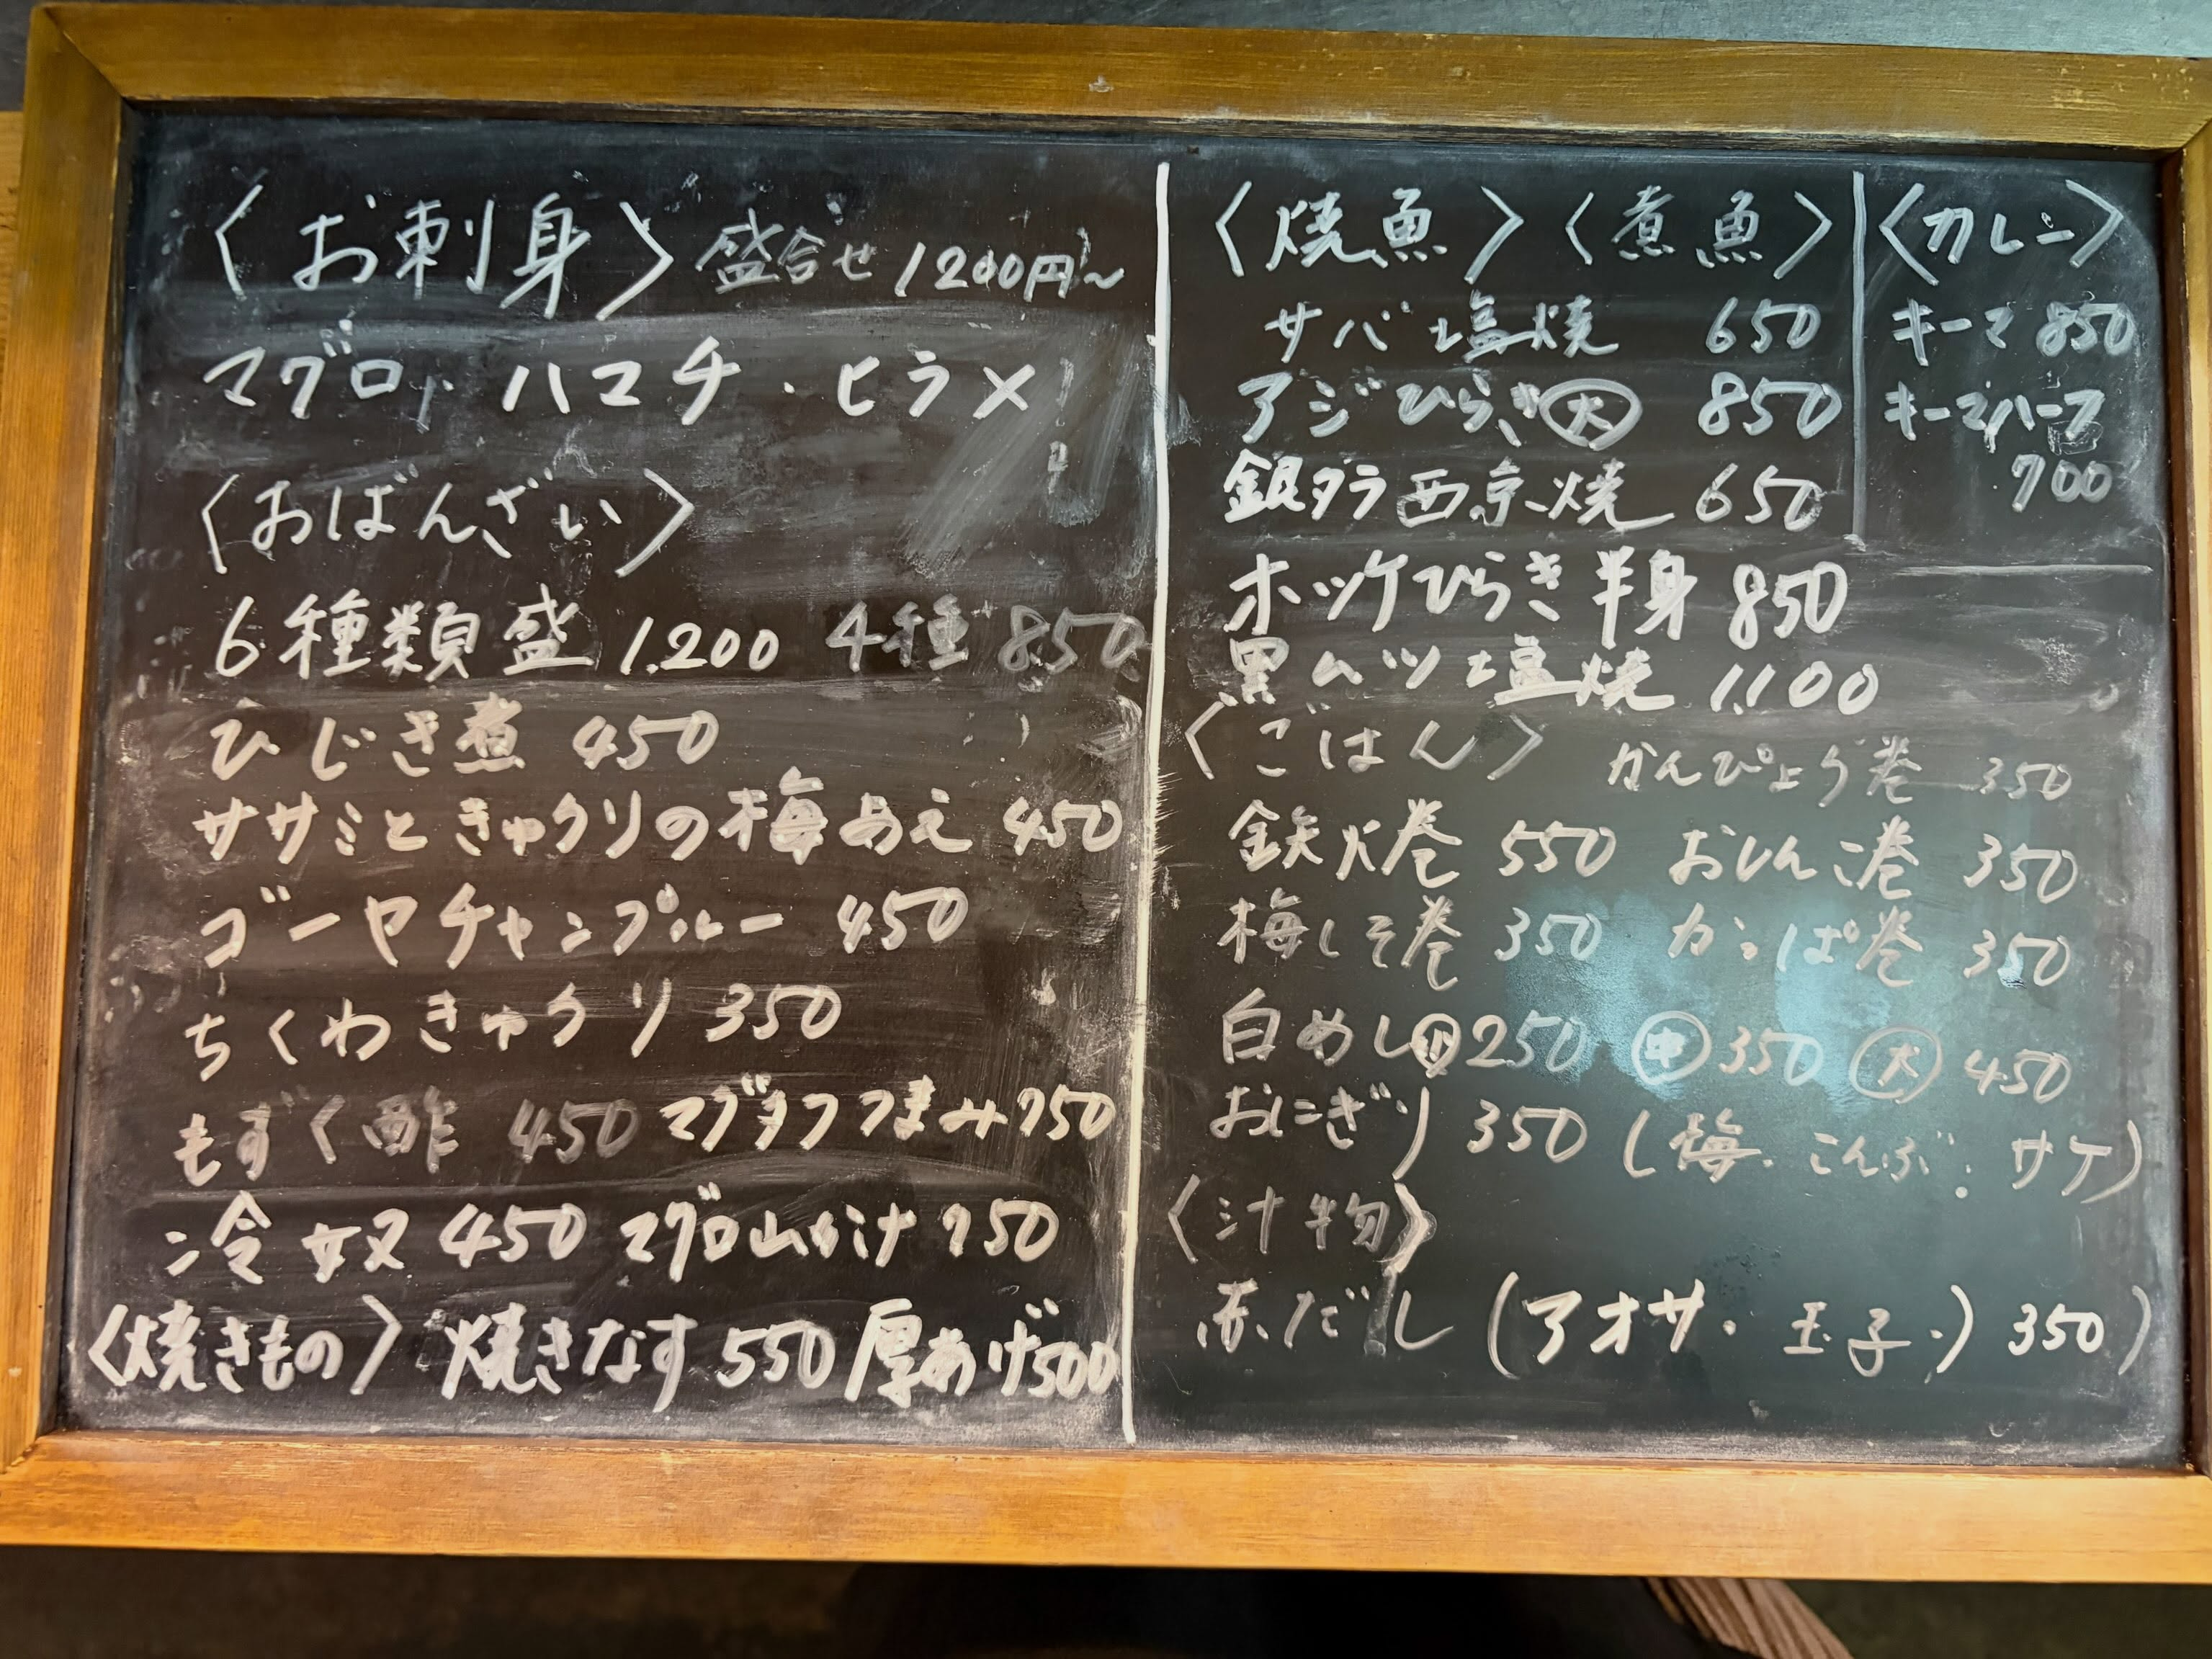 〈お刺身〉盛合せ 1200円～
マグロ・ハマチ・ヒラメ
〈おばんざい〉
6種類盛 1.200 4種 850
ひじき煮 450
ササミときゅうりの梅あえ 450
ゴーヤチャンプルー 450
ちくわきゅうり 350
もずく酢 450 マグロ つまみ 750
冷奴 450 マグロ山かけ 750
〈焼きもの〉焼きなす 550 厚あげ 500
〈焼魚〉〈煮魚〉
サバ塩焼 650
アジひらき 大 850
銀タラ西京焼 650
ホッケひらき半身 850
黒ムツ塩焼 1.100
〈カレー〉
キーマ 850
キーマハーフ
700
〈ごはん〉 かんぴょう巻 350
鉄火巻 550 おしんこ巻 350
梅しそ巻 350 かっぱ巻 350
白めし 小 250 中 350 大 450
おにぎり 350 (梅・こんぶ・サケ)
〈汁物〉
赤だし (アオサ・玉子・) 350)